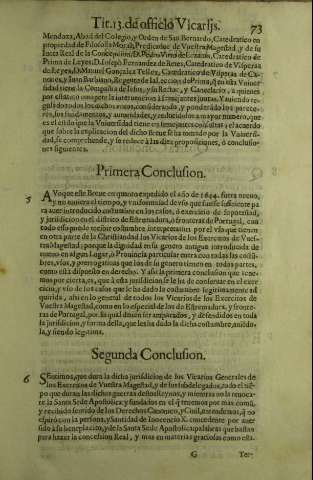 Tit. 13. de officio Vicarijs. 73
Mendoza, Abad del Colegio, y Orden de San Bernardo, Catedratico en
propiedad de Filosofia Moral, Predicador de Vuestra Magestad, y de su
Junta Real de la Concepcion, D. Pedro
Prima de Leyes, D. Ioseph Fernandez de Retes, Catedratico de Visperas
de Leyes, D. Manuel Gonçalez Tellez, Catedratico de Visperas de Ca-
nones, y Iuan Barbiano, Regente de la Leccion de Prima, q en esta Vniuer-
sidad tiene la Compañia de Iesus, y su Rector, y Cancelario, a quienes
por estatuto
do todos los dichos
res, sus fundamentos, y autoridades, y reducidolos a mayor numero, que
es el estilo que la Vniuersidad tiene en semejantes consultas; el acuerdo
que sobre la explicacion del dicho Breue se ha tomado por la Vniuersi-
dad, se comprehende, y se reduce à las diez proposiciones, ò conclusio-
nes siguientes.
Primera Conclusion.
5 AVnque este Breue en quanto expedido el año de 1644. fuera nueuo,
y no tuuiera el tiempo, y vniformidad de vso que fuesse suficiente pa-
ra auer introducido costumbre en los casos, ò exercicio de su potestad,
y jurisdicion en el distrito de Estremadura, ò fronteras de Portugal, con
todo esso pudo recibir costumbre interpretatiua por el vso que tienen
en otra parte de la Christiandad los Vicarios de los Exercitos de Vues-
tra Magestad; porque la dignidad en su genero antigua introducida de
nueuo en algun Lugar, ò Prouincia particular entra con todas las costũ-
bres, vsos, y prerrogatiuas que los de su genero tienen en todas partes,
como està dispuesto en derecho. Y assi la primera conclusion que tene-
mos por cierta, es, que à esta jurisdicion se le ha de conseruar en el exer-
cicio, y vso de los casos que le ha dado la costumbre legitimamente ad-
quirida, assi en lo general de todos los Vicarios de los Exercitos de
Vuestra Magestad, como en lo especial de los de Estremadura, y fronte-
ras de Portugal, por la qual deuen ser amparados, y defendidos en toda
la jurisdicion, y forma della, que les ha dado la dicha costumbre, auida-
la, y siendo legitima.
Segunda Conclusion.
6 SEntimos, que dura la dicha jurisdicion de los Vicarios Generales de
los Exercitos de Vuestra Magestad, y de sus subdelegados, todo el tiẽ-
po que duran las dichas guerras destos Reynos, y mientras no la reuoca-
re la Santa Sede Apostolica: y fundados en el q tenemos por mas comũ,
y recibido sentido de los Derechos Canonico, y Ciuil, entendemos, q no
espirò con la persona, y Santidad de Inocencio X. concedente por auer
sido
para hazer la concession Real, y mas en materias graciosas como esta.
G Ter-